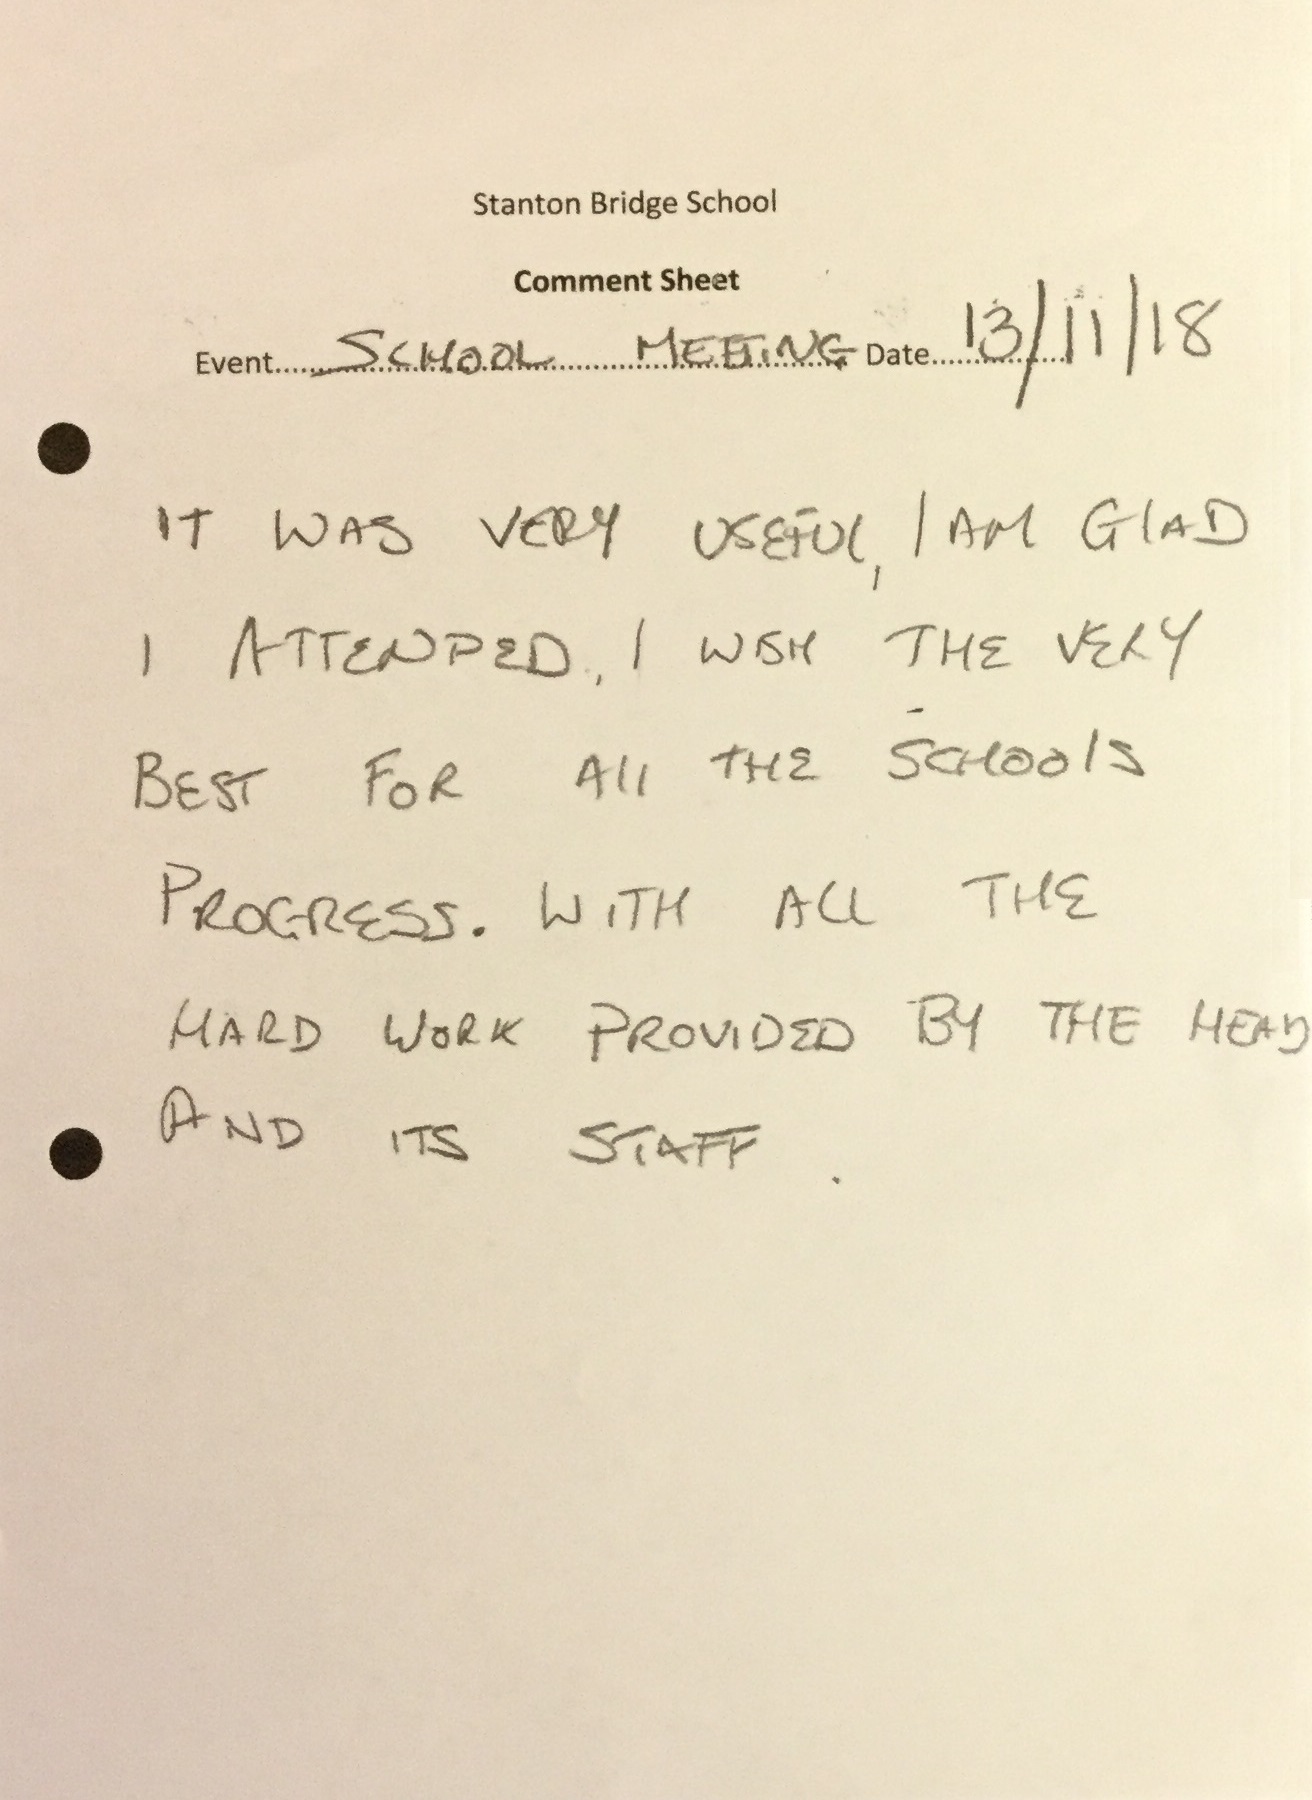 Stanton Bridge School
Comment Sheet
Event......SCHOOL MEETING Date......13/11/18
IT WAS VERY USEFUL, I AM GLAD
I ATTENDED, I WISH THE VERY
BEST FOR All THE SCHOOlS
PROGRESS. WITH ALL THE
HARD WORK PROVIDED BY THE HEAD
AND ITS STAFF.